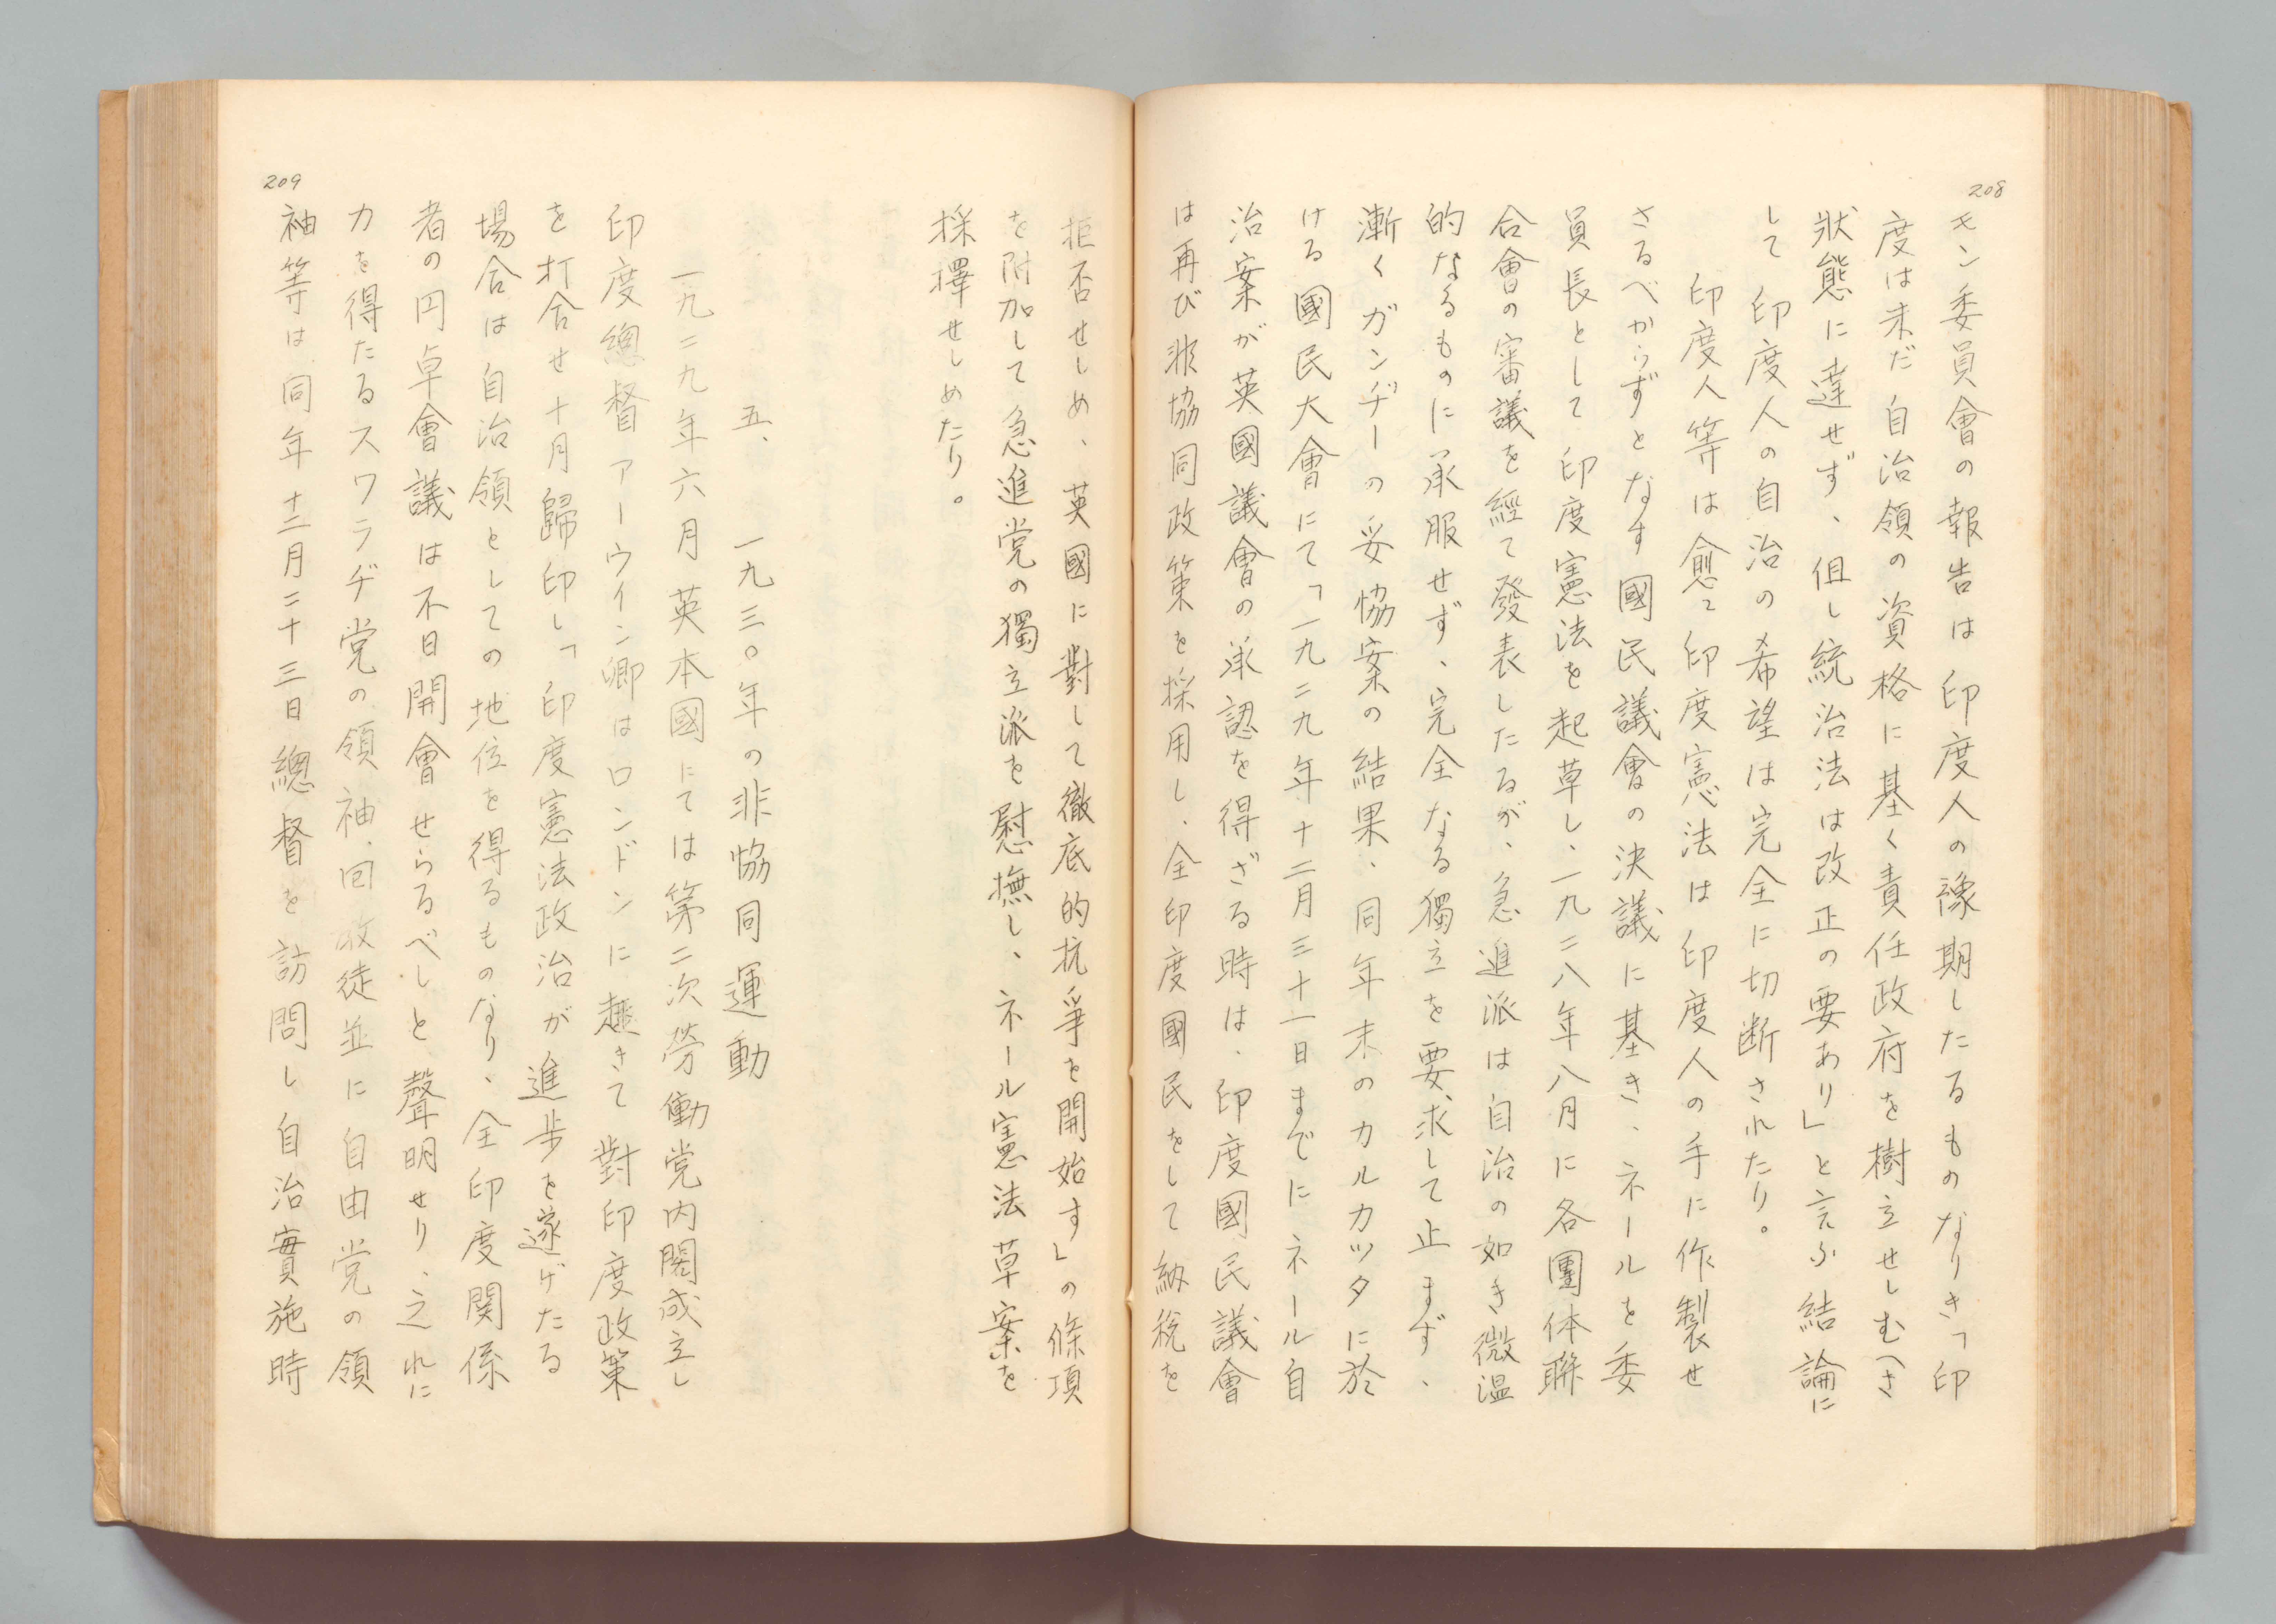 208
モン委員會の報告は印度人の豫期したるものなりき「印
度は未だ自治領の資格に基く責任政府を樹立せしむべき
狀態に達せず、但し統治法は改正の要あり」と言ふ結論に
して印度人の自治の希望は完全に切断されたり。
印度人等は愈々印度憲法は印度人の手に作製せ
さるべからずとなす國民議會の決議に基き、ネールを委
員長として印度憲法を起草し、一九二八年八月に各團体聯
合會の審議を經て發表したるが、急進派は自治の如き微温
的なるものに承服せず、完全なる獨立を要求して止まず、
漸くガンヂーの妥協案の結果、同年末のカルカッタに於
ける國民大會にて「一九二九年十二月三十一日までにネール自
治案が英國議會の承認を得ざる時は、印度國民議會
は再び非協同政策を採用し、全印度國民をして納税を
拒否せしめ、英國に對して徹底的抗爭を開始す」の條項
を附加して急進党の獨立派を慰撫し、ネール憲法草案を
採擇せしめたり。
五、一九三〇年の非協同運動
一九二九年六月英本國にては第二次勞働党内閣成立し
印度總督アーウイン卿はロンドンに趣きて對印度政策
を打合せ十月歸印し「印度憲法政治が進歩を遂げたる
場合は自治領としての地位を得るものなり、全印度関係
者の円卓會議は不日開會せらるべしと聲明せり、之れに
力を得たるスワラヂ党の領袖、回敎徒並に自由党の領
袖等は同年十二月二十三日總督を訪問し自治實施時
209